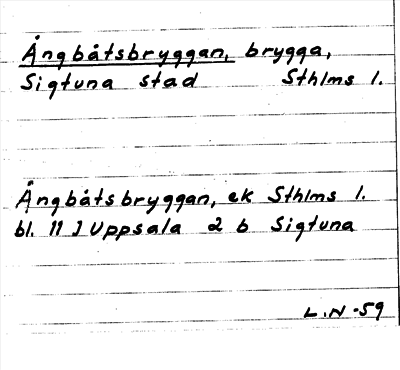 Ångbåtsbryggan, brygga,
Sigtuna stad Sthlms l.
Ångbåtsbryggan, ek Sthlms l.
bl. 11 J Uppsala 2 b Sigtuna
L.N -59